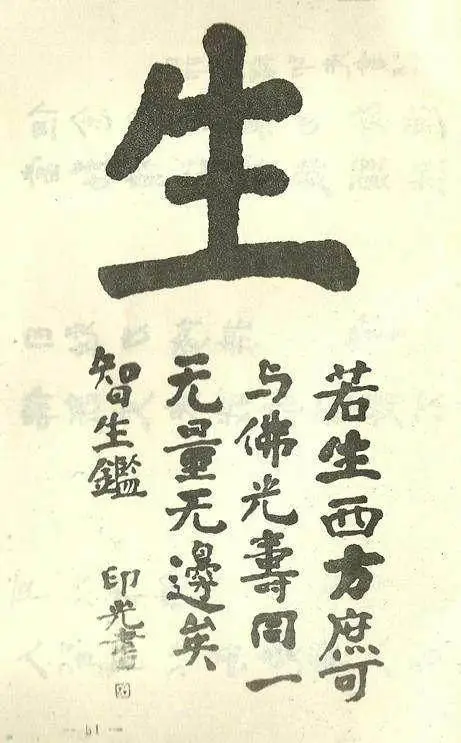 生
若生西方庶可
与佛光壽同一
无量无邊矣
智生鑑
印光書
— 51 —